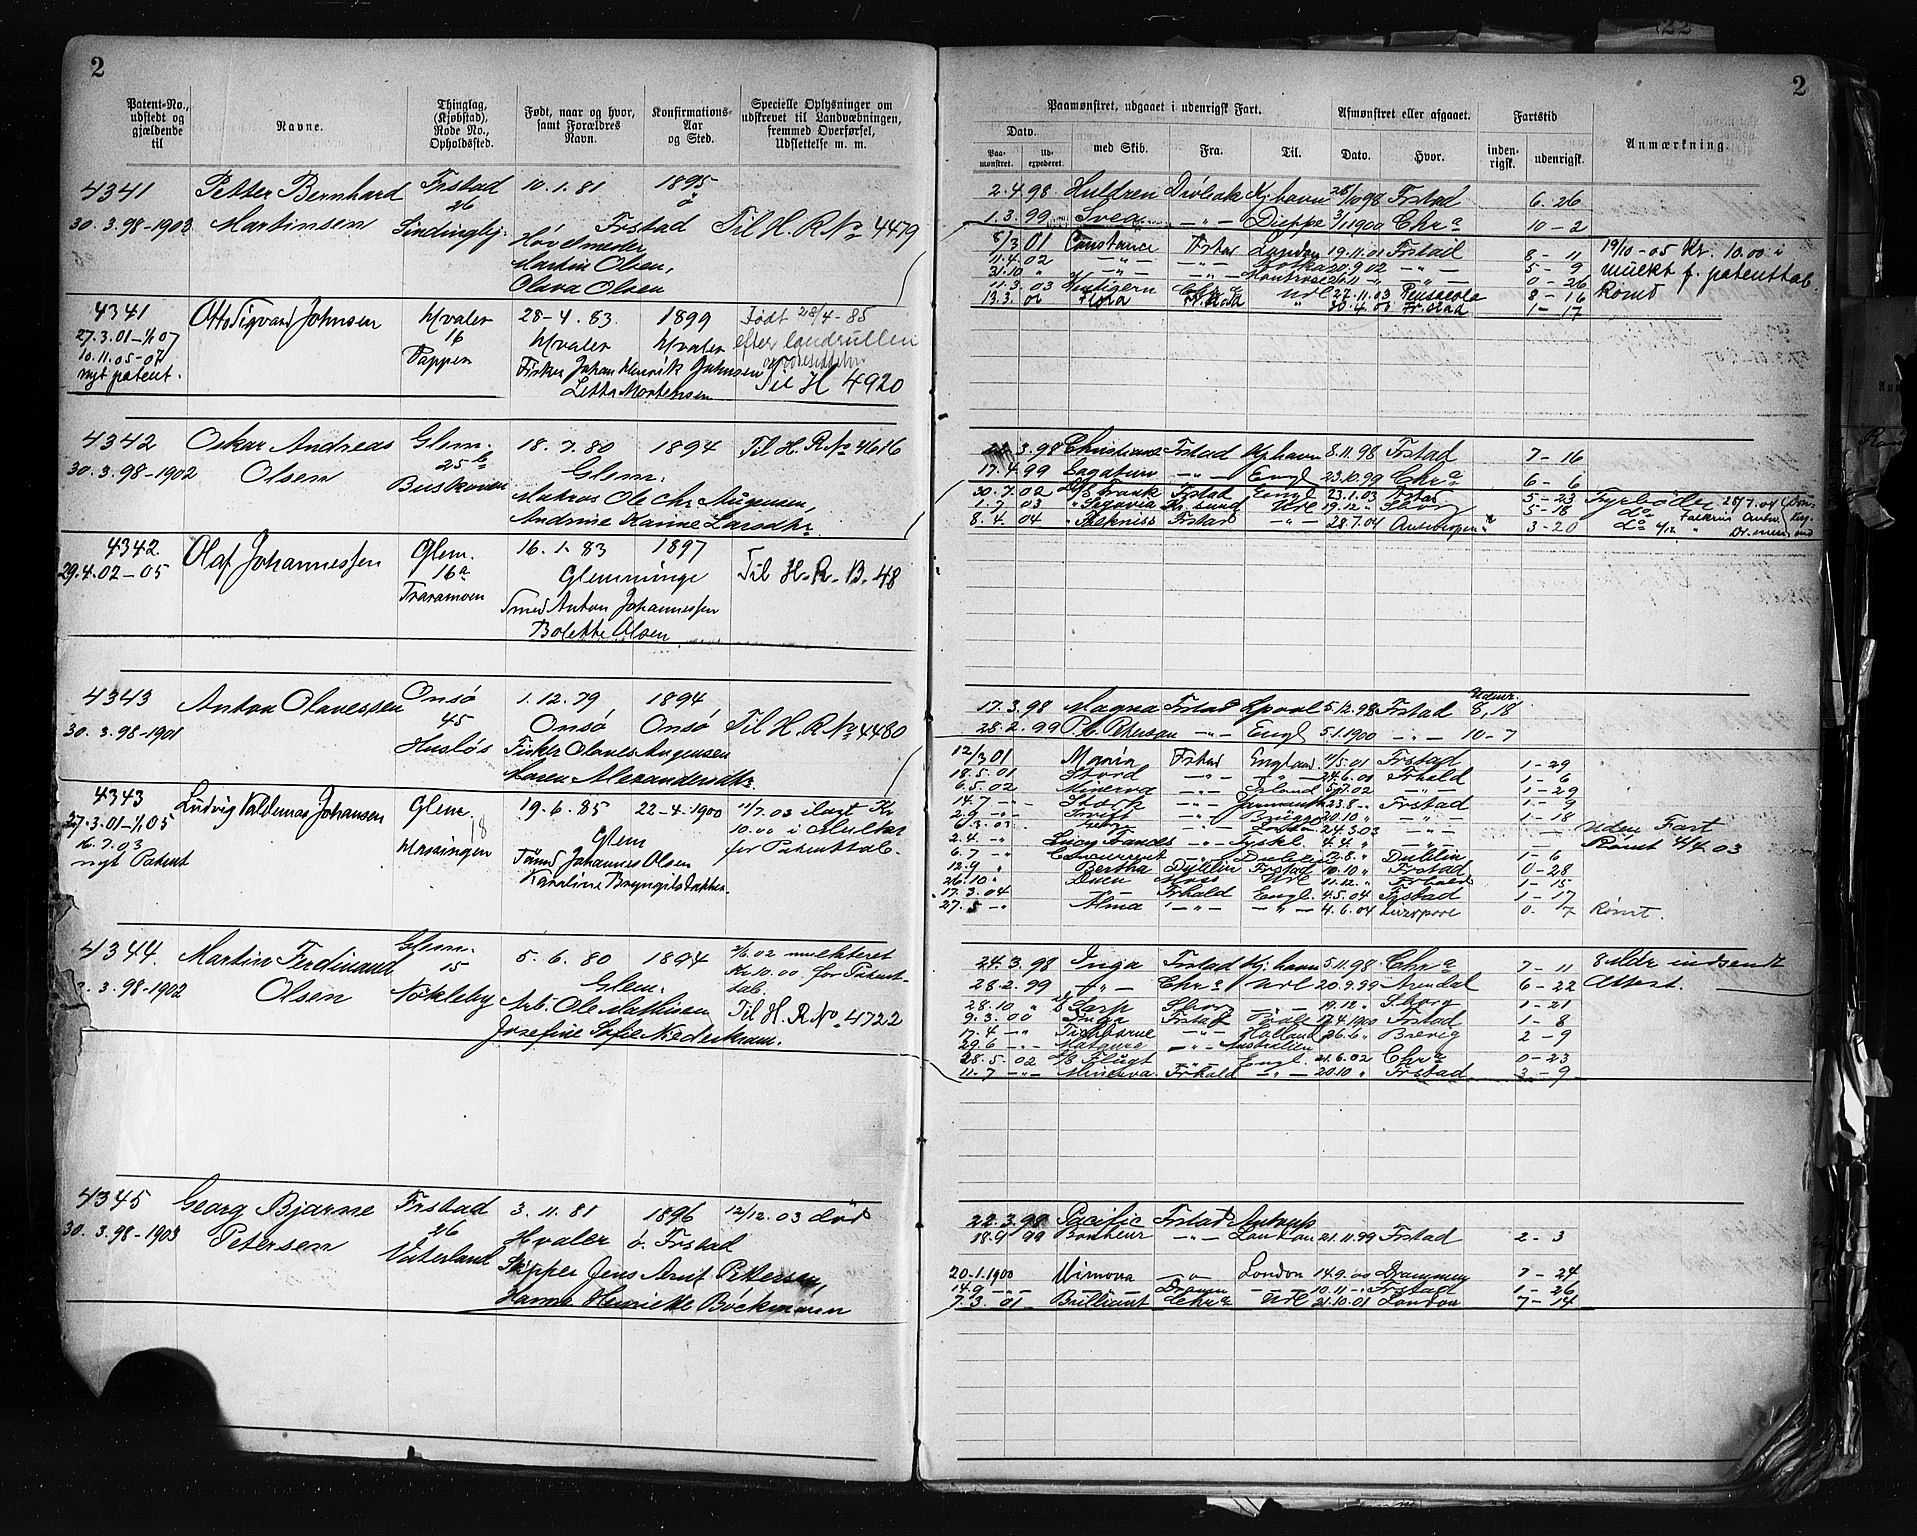 2
Patent-No., udstedt og gjældende til
Navne.
Thinglag, (Kjøbstad), Rode No., Opholdssted.
Født, naar og hvor, samt Forældres Navn.
Konfirmations-Aar og Sted.
Specielle Oplysninger om udskrevet til Landvæbningen, fremmed Overførsel, Udslettelse m. m.
4341 Petter Bernhard Frstad 10.1.81 1895
30.3.98-1902 Martinsen 26 Frstad Til H. R No 4479
Høvelmeder
Martin Olsen,
Olava Olsen
4341 Otto Sigvard Johnsen Hvaler 28-4.83. 1899 Født 28/4-85
27.3.01-1/1 07 16 Hvaler Hvaler efter landrullen
10.11.05-07 Papper Fisker Johan Henrik Johnsen
nyt patent. Letta Mortensen Til H 4920
4342 Oskar Andreas Glem. 18.7.80 1894 Til H. R No 4616
30.3.98-1902 Olsen 25 b Glem.
Buskoven Matros Ole Chr. Augensen,
Andrine Karine Larsdtr
4342 Olaf Johannessen Glem. 16.1.83 1897
29.4.02-05 16a Glemminge Til H.R.B. 48
Traramoen Smed Anton Johannessen
Bolette Olsen
4343 Anton Olavessen Onsø 1.12.79 1894
30.3.98-1901 45 Onsø Onsø Til H. R No 4480
Husløs Fisker Olaves Augensen
Karen Alexandersdtr
4343 Ludvig Valdemar Johansen Glem. 19.6.85 22-4-1900 11/7.03 ilagt Kr
27.3.01-1/1 05 18 Glem 10.00 i Mulkt
16.7.03 for Patenttab.
nyt Patent Tømd Johannes Olsen
Karoline Bryngilsdatter.
4344 Martin Ferdinand Glem. 5.6.80 1894 2/6.02 mulkteret
3.98-1902 Olsen 15 Glem. Kr 10.00 for Patent-
Nøkleby Arb. Ole Mathisen tab.
Josefine Sofie Til H. R No 4722
4345 Georg Bjarne Frstad 3.11.81 1896 12/12.03 død
30.3.98-1903 Petersen 26 Hvaler ö. Frstad
Vaterland Skipper Jens Arnt Pettersen,
Hanna Henriette Böckmann
2
Paamønstret, udgaaet i udenrigsk Fart.
Afmønstret eller afgaaet.
Fartstid
Dato.
Paa-mønstret. Ud-expederet. med Skib. Fra. Til. Dato. Hvor. inden-rigsk. udenrigsk. Anmærkning.
2.4.98 Huldren Drøbak Kj.havn 28/10 98 Frstad 6-26
1.3.99 Svea -"- Dieppe 3/1 1900 Chr a 10-2
8/3 01 Constance Frstad London 19.11.01 Frstad 8-11 19/10-05 Kr. 10.00 i
11.4.02 -"- -"- 20.9.02 -"- 5-9 mulkt f. patenttab.
31.10 " -"- -"- 26.11 -"- 0-26 Rømd
11.3.03 Chr a Url 27.11.03 Pensacola 8-16
13.3.06 30.4.06 Frstad 1-17
3.98 Christiane Frstad Kjhavn 8.11.98 Frstad 7-16
17.4.99 -"- Engl 23.10.99 Chr a 6-6
30.7.02 D/S Frank Frstad Engl 23.1.03 Frstad 5-23 Fyrbøder 28/7.04
1.7.03 " Segovia Kr.sund Url 19.12 " Sborg 5-18 do
8.4.04 Frstad -"- 28.7.04 Antwerpen 3-20 do
17.3.98 Magna Frstad Lpool 5.12.98 Frstad Udenr. 8,18
28.2.99 P. C. Petersen -"- Engl 5.1.1900 -"- 10-7
12/3 01 Maria Frstad England 11/5.01 Frstad 1-29
18.5.01 Stord -"- -"- 24.6.01 Frhald 1-6
6.5.02 Minerva -"- 5/7.02 -"- 1-29
14.7 -"- Stærk -"- 23.8 -"- Frstad 1-9
2.9 -"- -"- 20.10 " -"- 1-18
24.3.03 -"- Uden Fart
2.4 -"- Lucy Frances -"- Tyskl. 4.4 " -"- Rømt 4/4.03
6.7 -"- Dublin 1-6
12.9 " Bertha Dublin Frstad 10.10 " Frstad 0-28
26.10 " Duen Moss Url 11.12 " Frhald 1-15
17.3.04 -"- Frhald Engl. 4.5.04 Frstad 1-17
27.5 -"- Alma -"- -"- 4.6.04 0-7 Rømt.
24.3.98 Inga Frstad Kj.havn 5.11.98 Chr a 7-11 8 Mdr indsendt
28.2.99 -"- Chr a Url 20.9.99 Arendal 6-22 Attest.
28.10 " D/S Sarp Sborg -"- 19.12 " Sborg 1-21
9.3.00 Inga Frstad 17.4.1900 Frstad 1-8
17.4 -"- -"- Holland 26.6 " Brevig 2-9
29.6 -"- -"- Australien
28.5.02 D/S Flugt -"- Engl. 21.6.02 Chr a 0-23
11.7 -"- Minerva Frhald -"- 20.10 " Frstad 3-9
22.3.98 Pacific Frstad Antverp
18.9 99 Bonheur -"- London 21.11.99 Frstad 2-3
20.1.1900 Mimova -"- London 14.9.00 Drammen 7-24
14.9 -"- -"- Dramn -"- 10.11 -"- Frstad 1-26
7.3.01 Brilliant Chr a Url 21.10.01 London 7-14